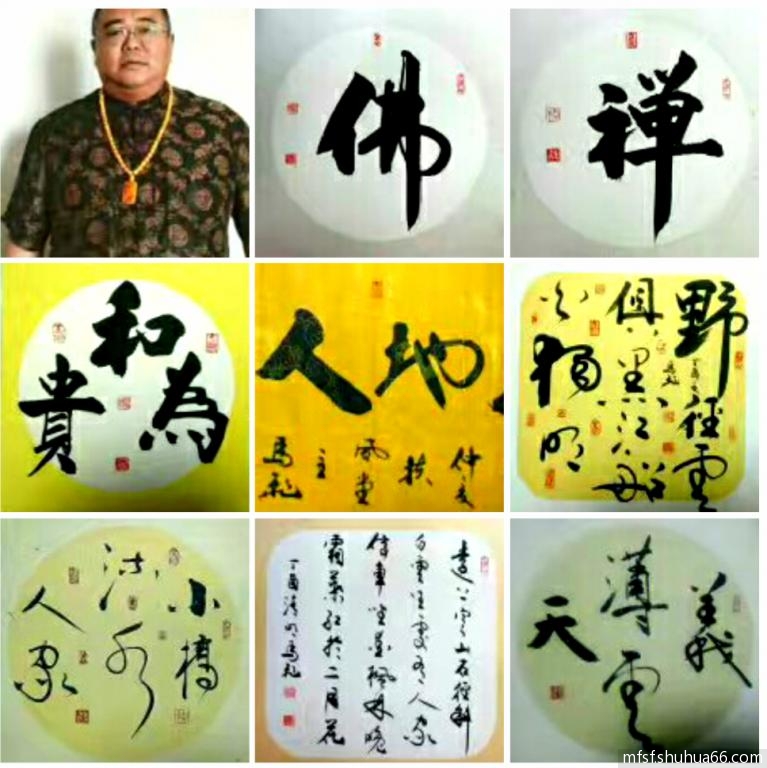 佛
禅
和
為
貴
地
人
扶
風堂
主
野径雲
俱黑江船
火獨明
小橋
流水
人家
遠上寒山石徑斜
白雲生處有人家
停車坐愛楓林晚
霜葉紅於二月花
丁酉清明馬礼
義
薄雲
天
mfsf.shuhua66.com